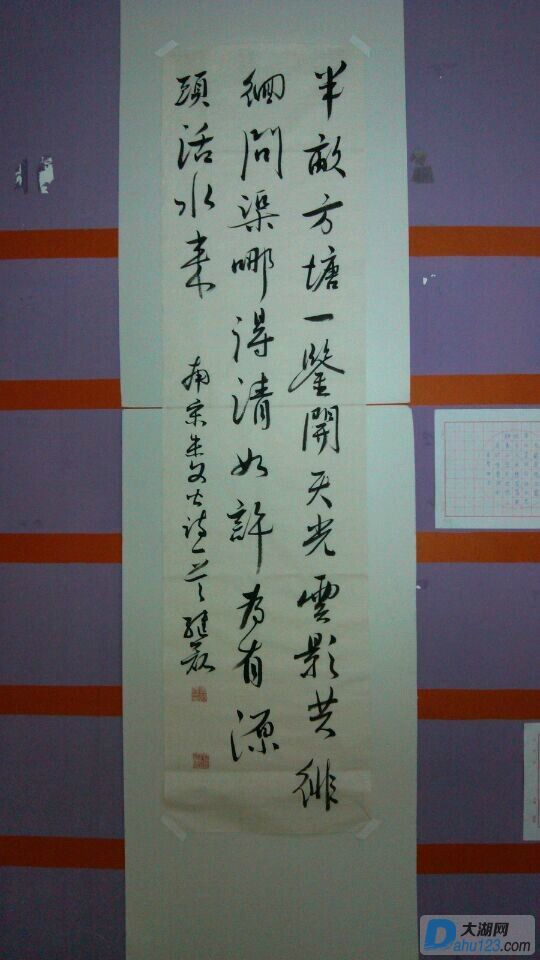 半畝方塘一鑒開天光雲影共徘
徊問渠哪得清如許為有源
頭活水來
南宋朱文公詩一首
大湖网
Dahu123.com